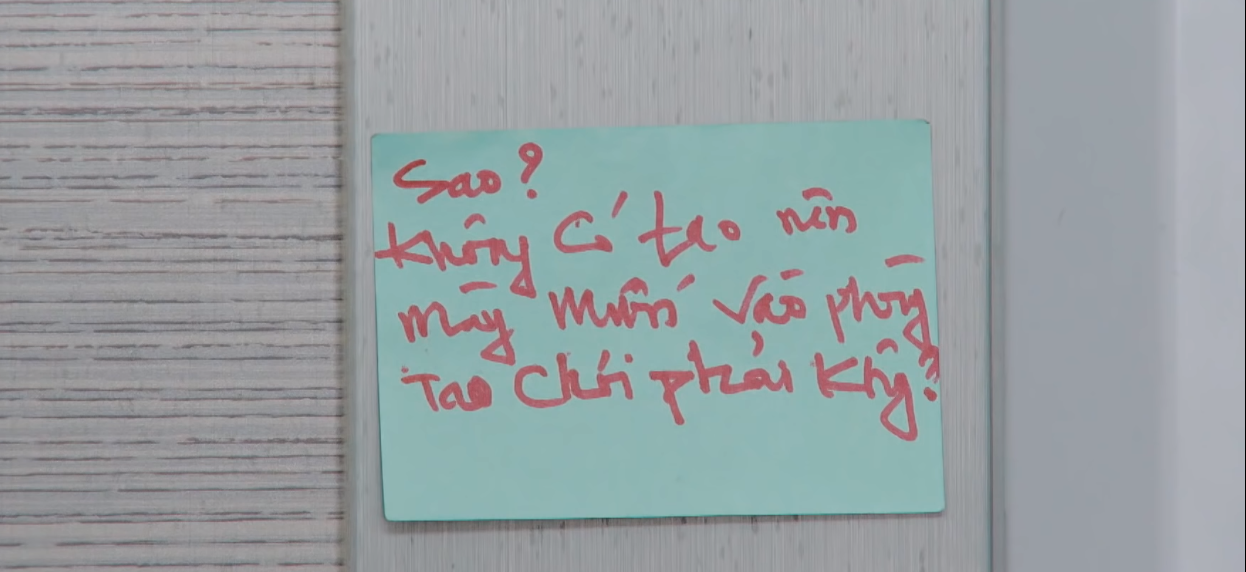 Sao?
Không có tao nên
mày muốn vào phòng
Tao chơi phải Khg?